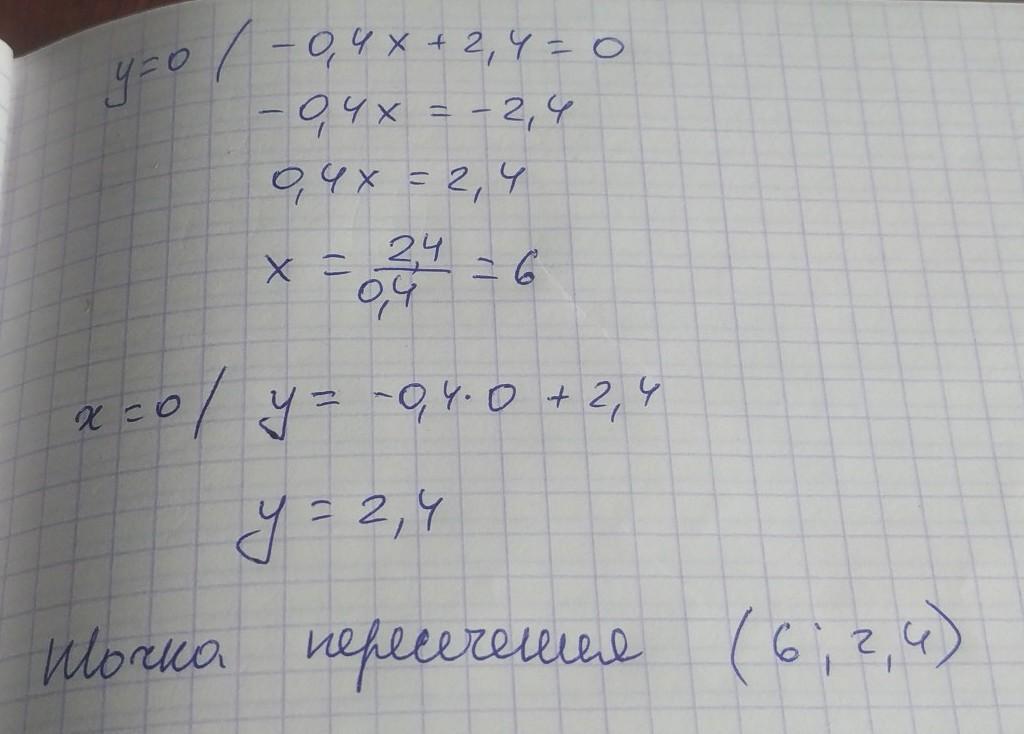 y=0 / -0,4x + 2,4 = 0
-0,4x = -2,4
0,4x = 2,4
x = 2,4/0,4 = 6
x=0 / y = -0,4·0 + 2,4
y = 2,4
Точка пересечения (6; 2,4)